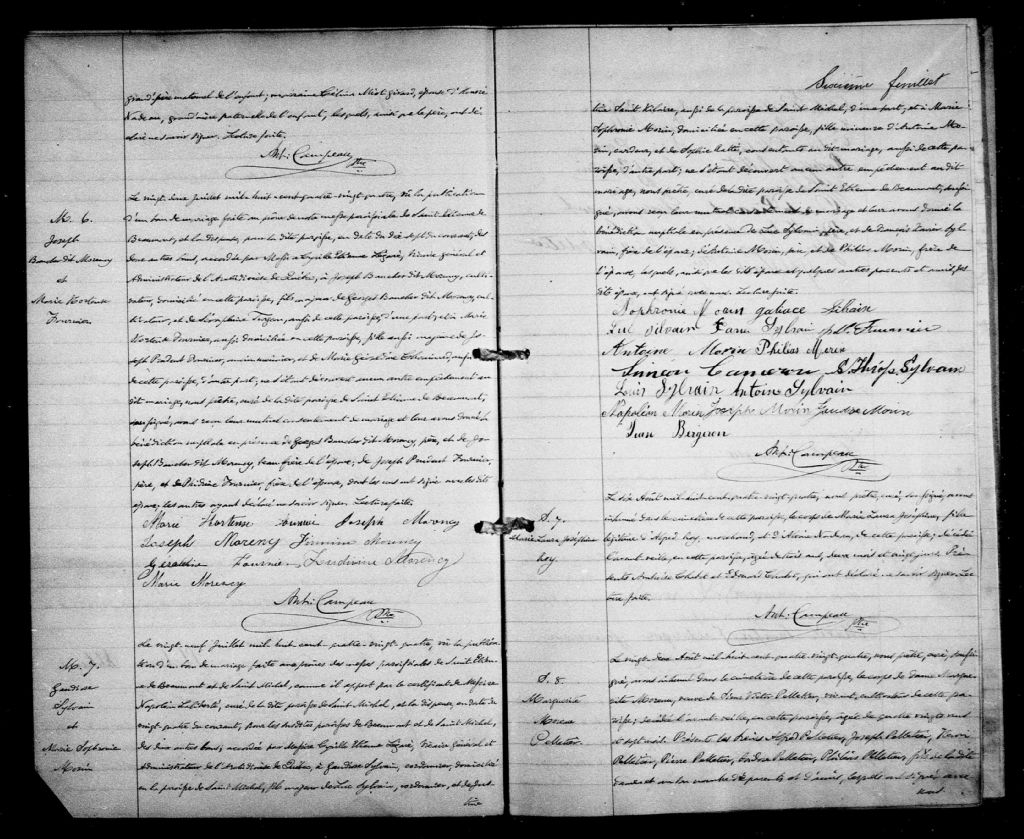 grand'père maternel de l'enfant; marraine Célina Miot-Girard, épouse d'Honoré
Nadeau, grand'mère paternelle de l'enfant, lesquels, ainsi que le père, ont dé-
claré ne savoir signer. Lecture faite.
Ant: Campeau
Ptre
M. 6.
Joseph
Baucher dit Morency
et
Marie Hortense
Fournier
Le vingt deux Juillet mil huit cent quatre vingt quatre, vu la publication
d'un ban de mariage faite au prône de notre messe paroissiale de Saint Etienne de
Beaumont, et la dispense, pour la dite paroisse, en date du dix sept du courant, des
deux autres bans, accordée par Messire Cyrille Etienne Légaré, Vicaire général et
Administrateur de l'Archidiocèse de Québec, à Joseph Baucher dit Morency, culti-
vateur, domicilié en cette paroisse, fils majeur de Georges Baucher dit Morency, cul-
tivateur, et de Séraphine Turgeon, aussi de cette paroisse, d'une part; et à Marie
Hortense Fournier, aussi domiciliée en cette paroisse, fille aussi majeure de Jo-
seph Prudent Fournier, et de Marie
de cette paroisse, d'autre part; ne s'étant découvert aucun empêchement au
dit mariage, nous prêtre, curé de la dite paroisse de Saint Etienne de Beaumont,
soussigné, avons reçu leur mutuel consentement de mariage et leur avons donné la
bénédiction nuptiale en présence de Georges Baucher dit Morency père, et de Jo-
seph Baucher dit Morency, beau frère de l'époux; de Joseph Prudent Fournier,
père, et de Fournier, frère de l'épouse, dont les uns ont signé avec les dits
époux, les autres ayant déclaré ne savoir signer. Lecture faite.
Marie Hortense Fournier Joseph Morency
Joseph Morency Firmine Morency
Geraldine Fournier Ludivine Morency
Marie Morency
Ant: Campeau
Ptre
M. 7.
Gaudiose
Sylvain
et
Marie Sophronie
Morin
Le vingt neuf Juillet mil huit cent quatre vingt quatre, vu la publica-
tion d'un ban de mariage faite aux prônes des messes paroissiales de Saint Etien-
ne de Beaumont et de Saint Michel, comme il appert par le certificat de Messire
Napoléon Laliberté, curé de la dite paroisse de Saint Michel, et la dispense, en date du
vingt quatre du courant, pour les susdites paroisses de Beaumont et de Saint Michel,
des deux autres bans, accordée par Messire Cyrille Etienne Légaré, Vicaire Général et
Administrateur de l'Archidiocèse de Québec, à Gaudiose Sylvain, cordonnier, domicilié
en la paroisse de Saint Michel, fils majeur de Luc Sylvain, cordonnier, et de feue
Sixième feuillet
Saint Hilaire, aussi de la paroisse de Saint Michel, d'une part, et à Marie
Sophronie Morin, domiciliée en cette paroisse, fille mineure d'Antoine Mo-
rin, et de Sophie, consentants au dit mariage, aussi de cette pa-
roisse, d'autre part; ne s'étant découvert aucun autre empêchement au dit
mariage, nous prêtre curé de la dite paroisse de Saint Etienne de Beaumont, soussi-
gné, avons reçu leur mutuel consentement de mariage et leur avons donné la
bénédiction nuptiale en présence de Luc Sylvain père, et de François Xavier Syl-
vain, frère de l'époux; d'Antoine Morin, père, et de Philias Morin, frère de
l'épouse, lesquels, ainsi que les dits époux et quelques autres parents et amis, des
dits époux, ont signé avec nous. Lecture faite.
Sophronie Morin
Luc Sylvain Sylvain Fournier
Antoine Morin Philias Morin
Simeon Cameron Sylvain
Louis Sylvain Antoine Sylvain
Napoléon Morin Joseph Morin Morin
Jean Bergeron
Ant: Campeau
Ptre
S. 7.
Marie Laura Joséphine
Roy
Le six Août mil huit cent quatre vingt quatre, nous prêtre, curé, soussigné, avons
inhumé dans le cimetière de cette paroisse, le corps de Marie Laura Joséphine, fille
légitime d' Roy, marchand, et d' Nadeau, de cette paroisse; décédée
l'avant veille, en cette paroisse, âgée de trois ans, deux mois et onze jours. Pré-
sents et qui ont déclaré ne savoir signer. Lec-
ture faite.
Ant: Campeau
Ptre
S. 8.
Marguerite
Moreau
Pelletier
Le vingt deux Août mil huit cent quatre vingt quatre, nous prêtre, curé, soussi-
gné, avons inhumé dans le cimetière de cette paroisse, le corps de Dame Margue-
rite Moreau, veuve de Sieur Victor Pelletier, vivant, cultivateur de cette pa-
roisse; décédée l'avant veille, en cette paroisse, âgée de quatre vingts ans
et sept mois. Présents les Sieurs Alfred Pelletier, Joseph Pelletier, Henri
Pelletier, Pierre Pelletier, Pelletier, Philéas Pelletier, fils de la dite
défunte et un bon nombre de parents et d'amis, lesquels ont signé avec